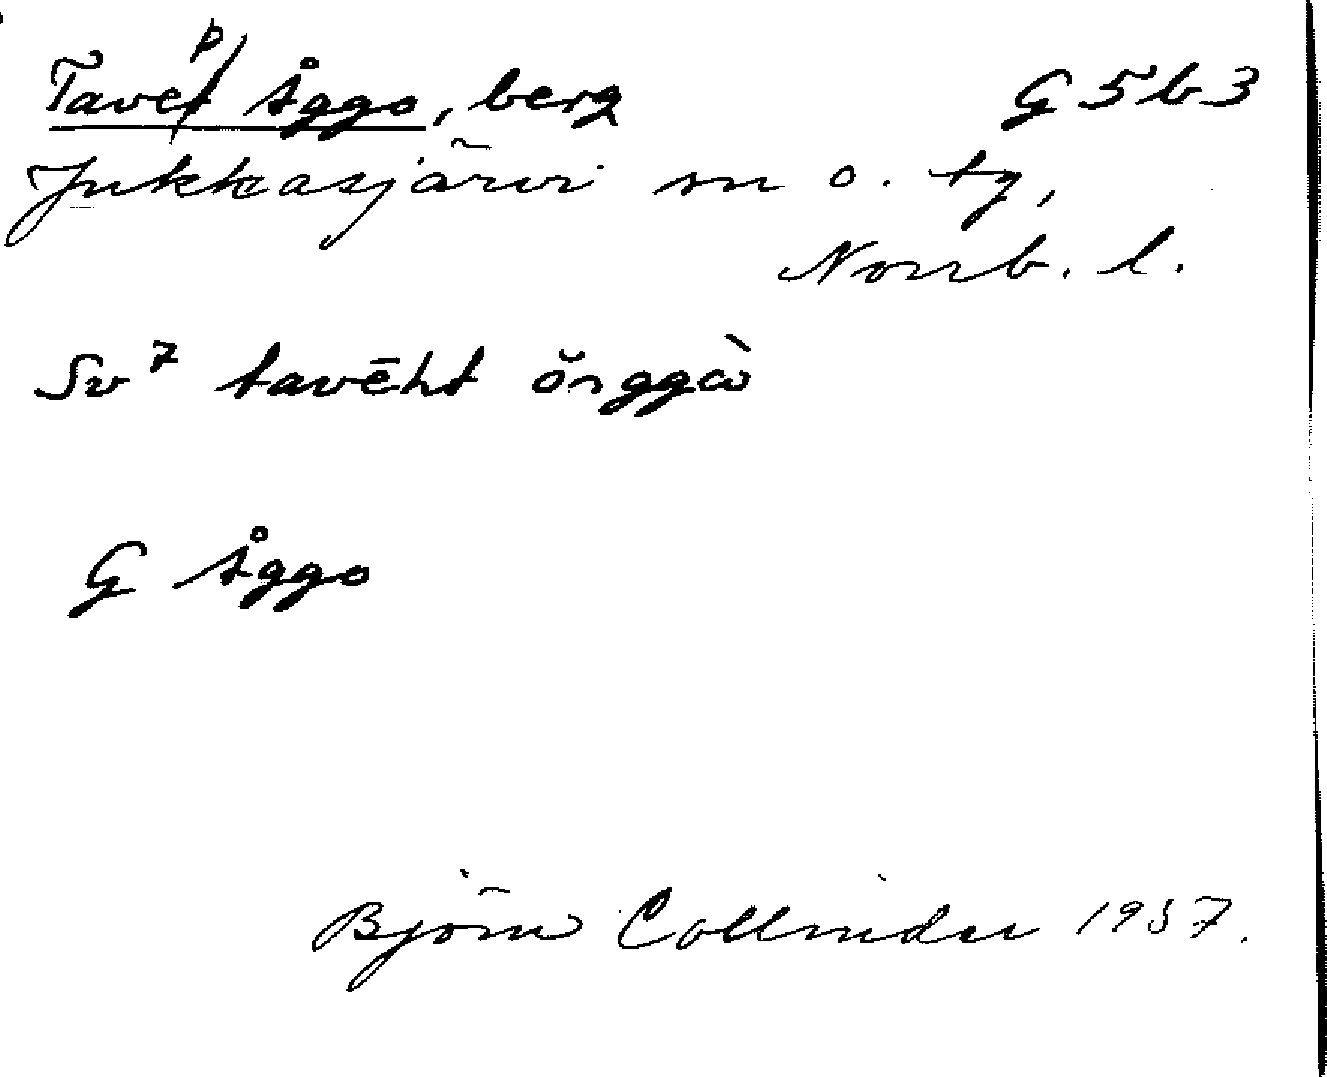 Tavep Åggo, berg G 5 b 3
Jukkasjärvi sn o. tg,
Norrb. l.
Sv 7 tavēht
G Åggo
Björn Collinder 1957.